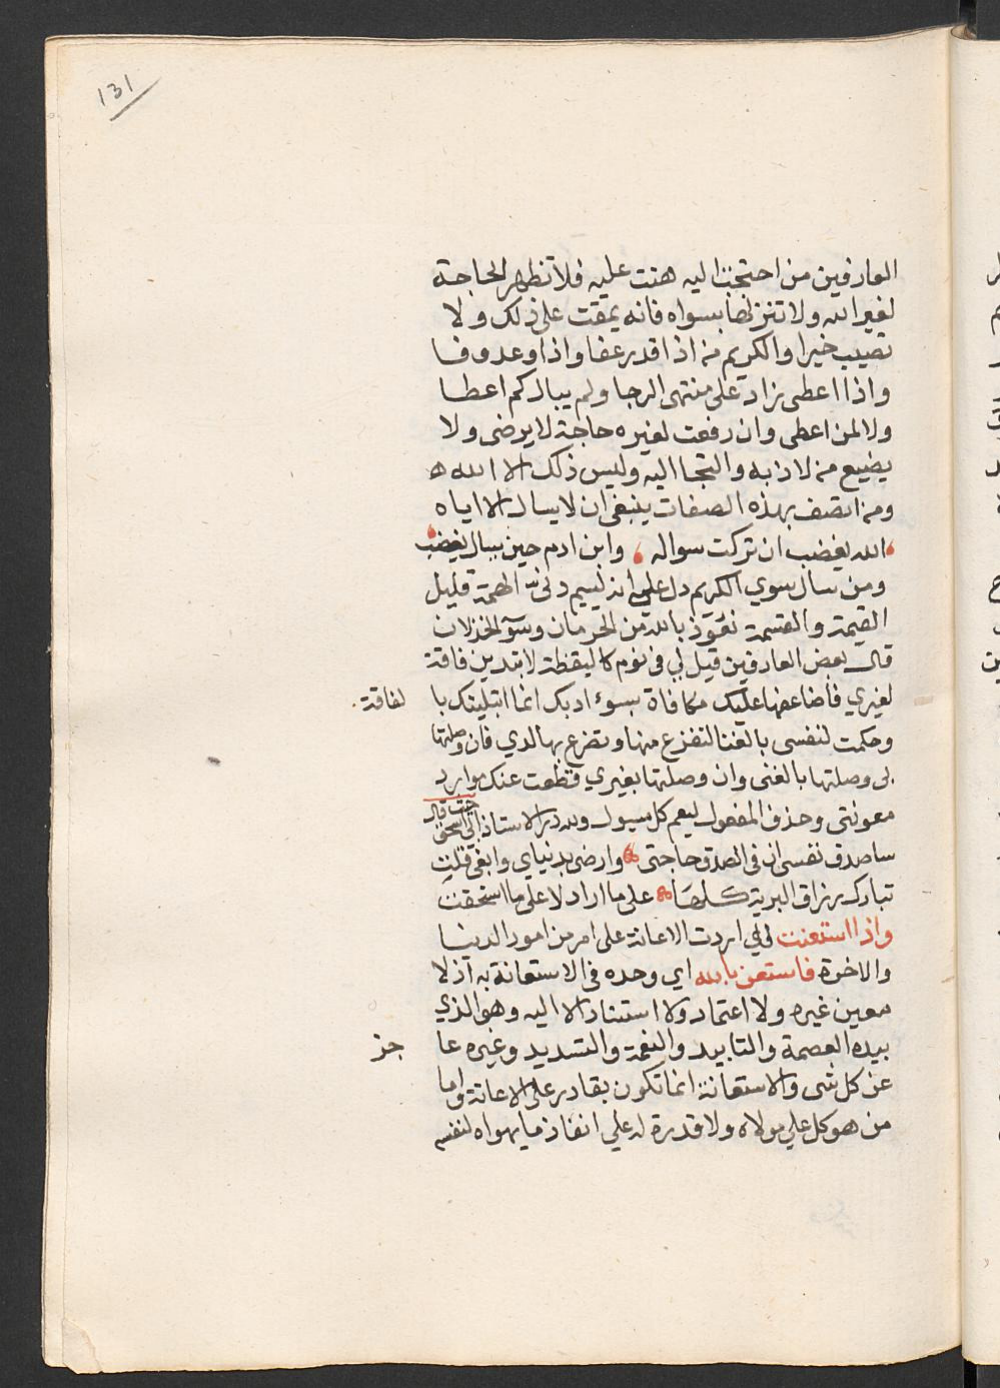 131
العارفين من احتجت اليه هنت عليه فلا تظهر الحاجة
لغير الله ولا تنزلها بسواه فانه يمقت على ذلك ولا
تصيب خيرا والكريم من اذا قدر عفا واذا وعد وفا
واذا اعطى زاد على منتهى الرجا ولم يبال كم اعطا
ولا لمن اعطى وان رفعت لغيره حاجة لا يرضى ولا
يضيع من لاذ به والتجا اليه وليس ذلك الا الله ه
ومن اتصف بهذه الصفات ينبغي ان لا يسال الا اياه
الله يغضب ان تركت سواله وابن ادم حين يسال يغضب
ومن سال سوي الكريم دل على انه ليم دني الهمة قليل
القيمة والقسمة نعوذ بالله من الحرمان وسو الخذلان
قال بعض العارفين قيل لي في نوم كاليقظة لا تبدين فاقة
لغيري فاضاعفها عليك مكافاة بسوء ادبك انما ابتليتك با لفاقة
وحكمت لنفسي بالغنا لتفزع منها وتضرع بها لدي فان وصلتها
بي وصلتها بالغنى وان وصلتها بغيري قطعت عنك موارد
معونتي وحذف المفعول ليعم كل مسيول ولله در الاستاذ ابي اسحق
حيث قال
ساصدق نفسي ان في الصدق حاجتي وارضى بدنياي وابغي قلت
تبارك رزاق البرية كلها على ما اراد لا على ما استحقت
واذا استعنت اي اردت الاعانة على امر من امور الدنيا
والاخرة فاستعن بالله اي وحده في الاستعانة به اذ لا
معين غيره ولا اعتماد ولا استناد الا اليه وهو الذي
بيده العصمة والتاييد والنعمة والتسديد وغيره عا جز
عن كل شي والاستعانة انما تكون بقادر على الاعانة واما
من هو كل على مولاه ولا قدرة له على انفاذ ما يهواه لنفسه